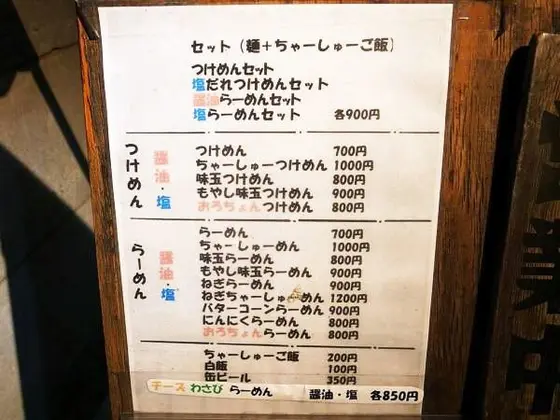 セット（麺＋ちゃーしゅーご飯）
つけめんセット
塩だれつけめんセット
醤油らーめんセット
塩らーめんセット 各900円
つけめん 醤油・塩
つけめん 700円
ちゃーしゅーつけめん 1000円
味玉つけめん 800円
もやし味玉つけめん 900円
おろちょんつけめん 800円
らーめん 醤油・塩
らーめん 700円
ちゃーしゅーめん 1000円
味玉らーめん 800円
もやし味玉らーめん 900円
ねぎらーめん 900円
ねぎちゃーしゅーめん 1200円
バターコーンらーめん 900円
にんにくらーめん 800円
おろちょんらーめん 800円
ちゃーしゅーご飯 200円
白飯 100円
缶ビール 350円
チーズわさびらーめん 醤油・塩 各850円